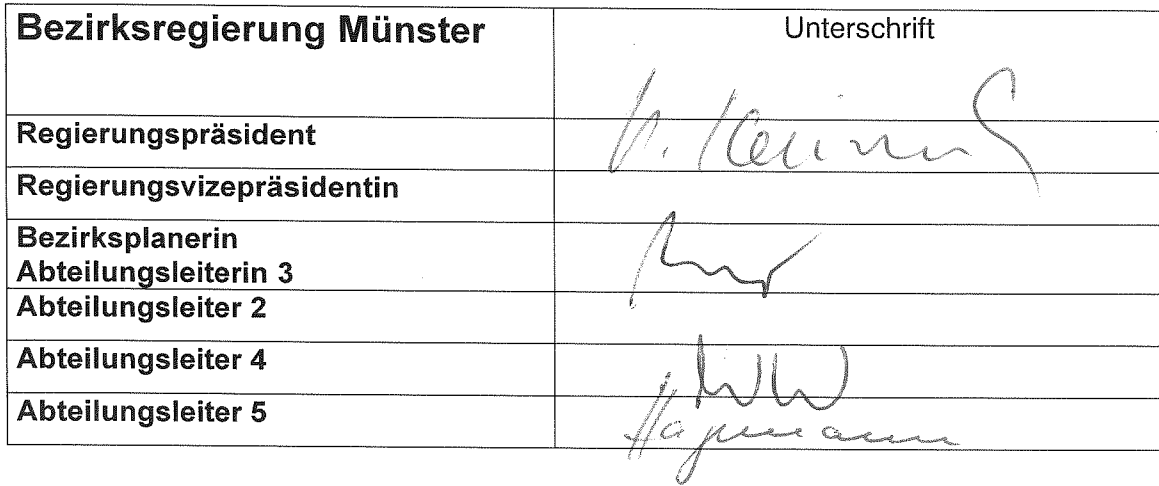 Bezirksregierung Münster
Unterschrift
Regierungspräsident
Regierungsvizepräsidentin
Bezirksplanerin
Abteilungsleiterin 3
Abteilungsleiter 2
Abteilungsleiter 4
Abteilungsleiter 5